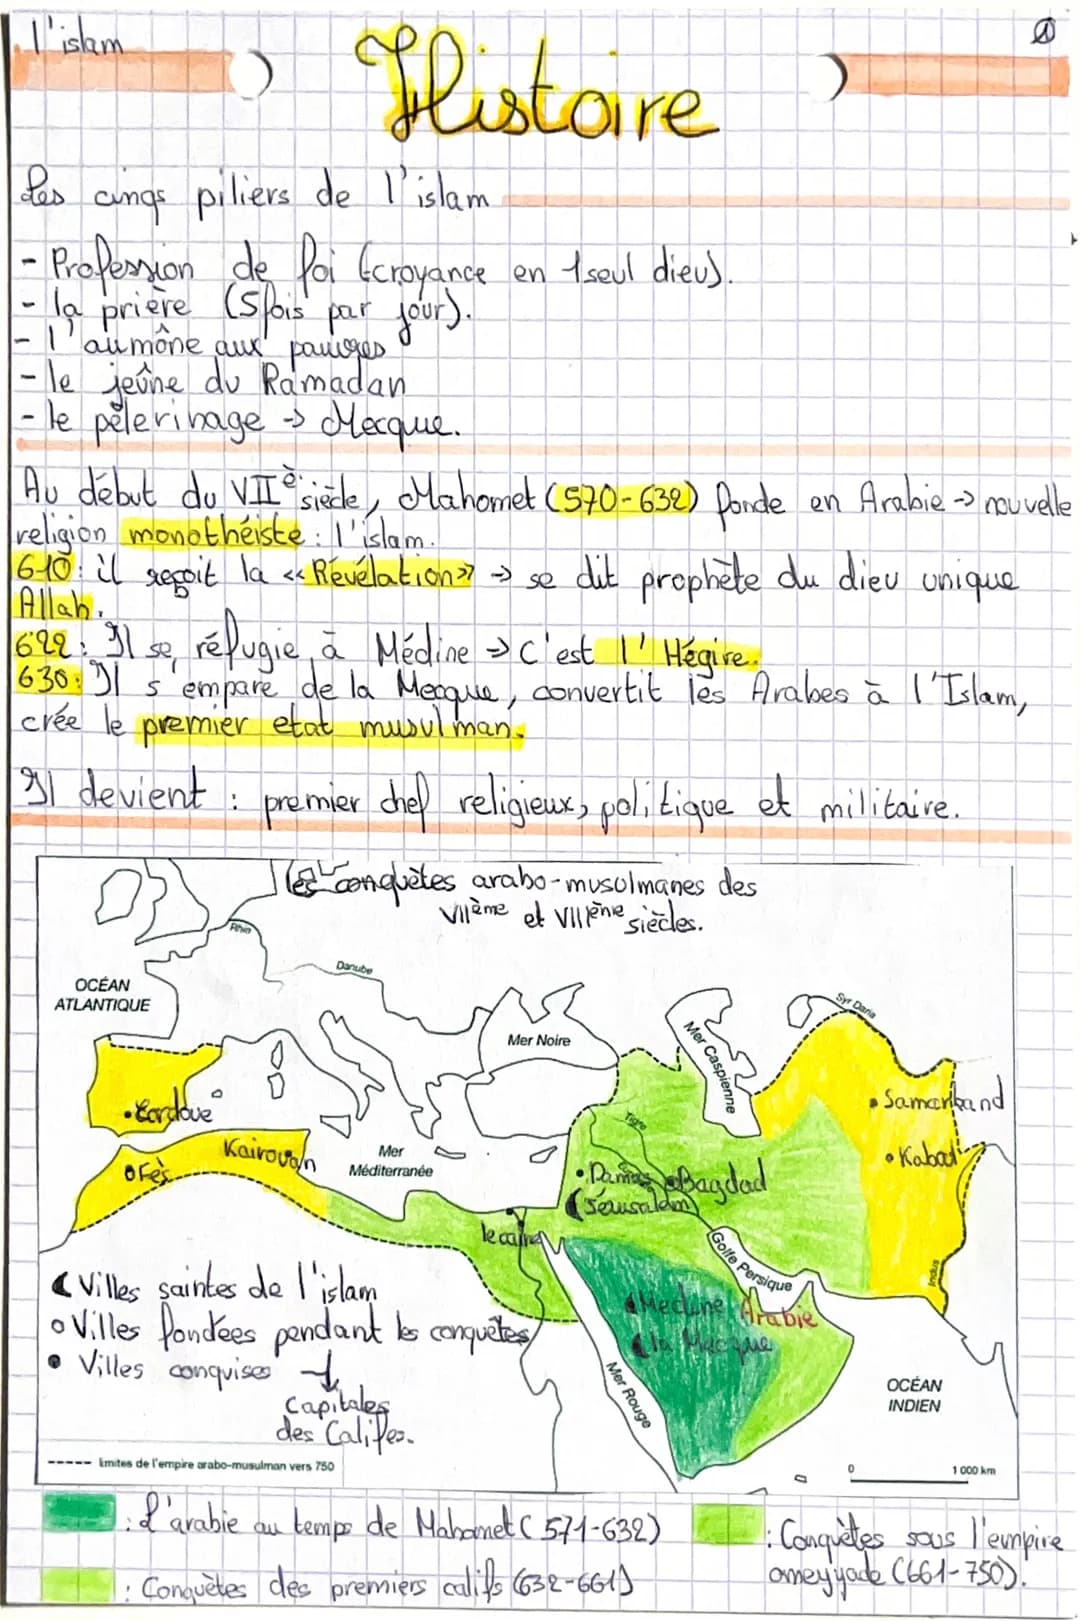 l'islam
1
Histoire
Les cinqs piliers de l'islam
- Profession de foi (croyance en 1 seul dieu).
- la prière (5 fois par jour).
- l'aumône aux pauvres
- le jeûne du Ramadan
- le pèlerinage -> Mecque.
Au début du VIIè siècle, Mahomet (570-632) fonde en Arabie -> nouvelle
religion monothéiste : l'islam.
610 : il reçoit la << Révélation >> -> se dit prophète du dieu unique
Allah.
622 : Il se réfugie à Médine -> C'est l'Hégire.
630 : Il s'empare de la Mecque, convertit les Arabes à l'Islam,
crée le premier etat musulman.
Il devient : premier chef religieux, politique et militaire.
les conquètes arabo-musulmanes des
VIIème et VIIIème siècles.
Rhin
Danube
OCÉAN
ATLANTIQUE
Syr Daria
Mer Noire
Mer Caspienne
Cordoue
Samarkand
Tigre
Kairouan
Mer
Méditerranée
Kaboul
Fès
Damas
Bagdad
Jérusalem
le caire
Golfe Persique
Indus
Villes saintes de l'islam
Medine
Arabie
Villes fondées pendant les conquètes
la Macque
Villes conquises
Mer Rouge
Capitales
des Califes.
OCÉAN
INDIEN
limites de l'empire arabo-musulman vers 750
0
1 000 km
: L'arabie au temps de Mahomet (571-632)
: Conquètes sous l'eumpire
omeyyade (661-750).
: Conquètes des premiers califs (632-661)